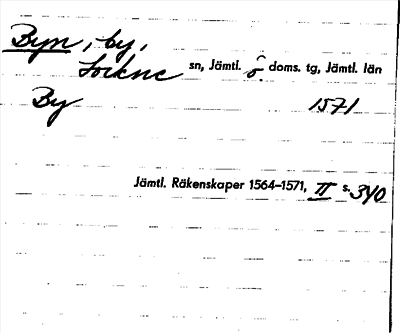 Byn, by,
Lockne sn, Jämtl. ö. doms. tg, Jämtl. län
By 1571
Jämtl. Räkenskaper 1564–1571, II s. 340